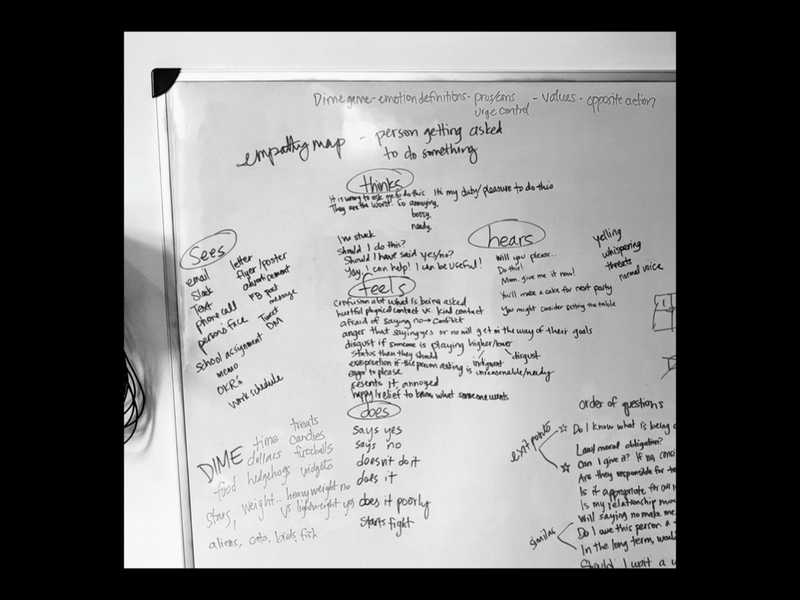 Dime game - emotion definitions - pros/cons - values - opposite action
urge control
empathy map - person getting asked
to do something
thinks
It is wrong to ask me to do this It's my duty/pleasure to do this
They are the worst. So annoying,
bossy,
needy.
I'm stuck
Should I do this?
Should I have said yes/no?
Yay, I can help! I can be useful!
sees
email
Slack
Text
phone call
person's face
school assignment
memo
OKR's
work schedule
letter
flyer/poster
advertisement
FB post
message
Tweet
DM
hears
Will you please...
Do this!
Mom, give me it now!
You'll make a cake for next party
You might consider setting the table
yelling
whispering
threats
normal voice
feels
confusion abt what is being asked
hurtful physical contact vs. kind contact
afraid of saying no → conflict
anger that saying yes or no will get in the way of their goals
disgust if someone is playing higher/lower
status than they should
indignant
disgust
exasperation if the person asking is unreasonable/needy
eager to please
resents it, annoyed
happy/relief to know what someone wants
does
says yes
says no
doesn't do it
does it
does it poorly
starts fight
DIME
time treats
dollars candies
fireballs
food hedgehogs widgets
stars, weight.. heavyweight no
vs lightweight yes
aliens, cats, birds, fish
order of questions
exit points
Do I know what is being
Legal/moral obligation?
Can I give it? If no,
Are they responsible for
Is it appropriate for
Is my relationship
Will saying no make me
similar
Do I owe this person a
In the long term,
Should I wait a